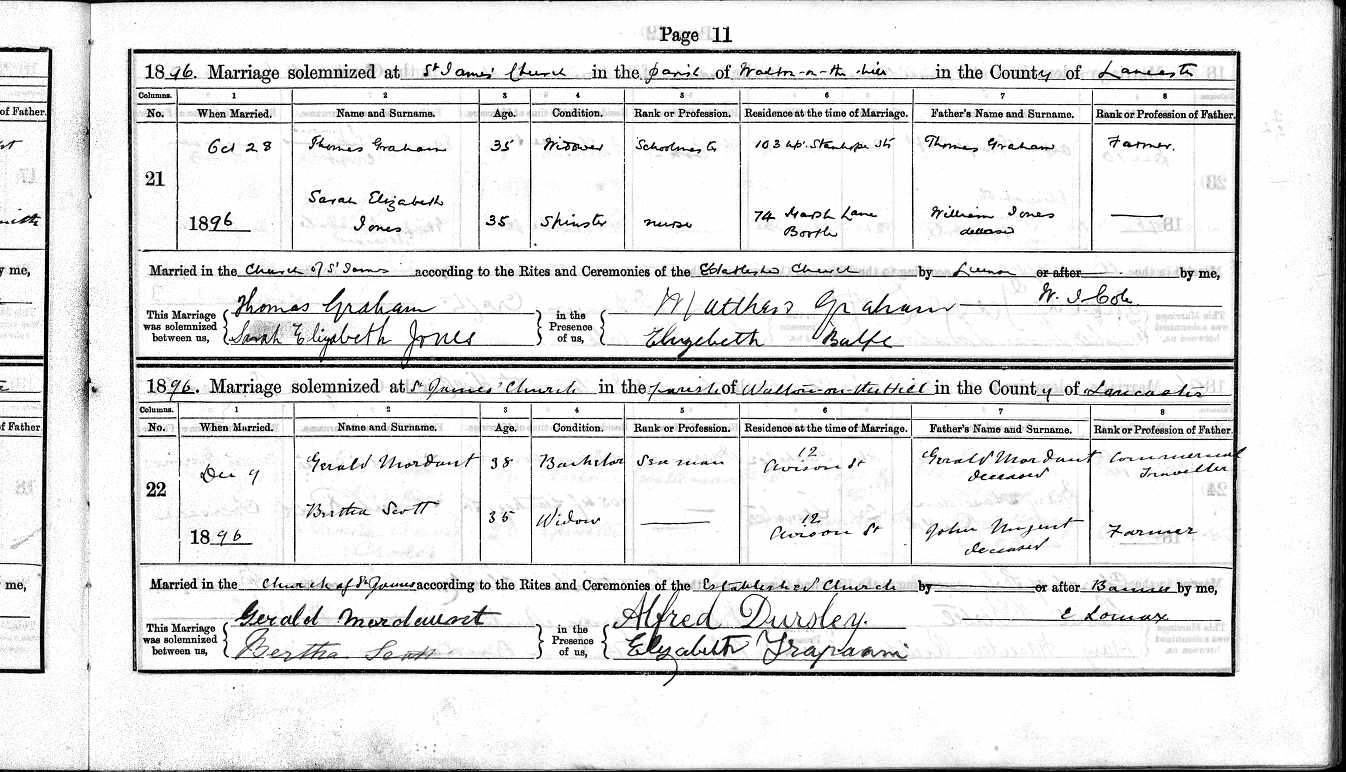 Page 11
1896. Marriage solemnized at St James' Church in the parish of Walton-on-the-Hill in the County of Lancaster
Columns. 1 2 3 4 5 6 7 8
No. When Married. Name and Surname. Age. Condition. Rank or Profession. Residence at the time of Marriage. Father's Name and Surname. Rank or Profession of Father.
21 Oct 28 Thomas Graham 35 Widower Schoolmaster 103 Stanhope St Thomas Graham Farmer.
1896 Sarah Elizabeth Jones 35 Spinster nurse 74 Marsh Lane Bootle William Jones deceased
Married in the Church of St James according to the Rites and Ceremonies of the Established Church by License or after by me,
W. J. Cole.
This Marriage was solemnized between us, Thomas Graham in the Presence of us, Matthew Graham
Sarah Elizabeth Jones Elizebeth Balfe
1896. Marriage solemnized at St James' Church in the parish of Walton-on-the-Hill in the County of Lancaster
Columns. 1 2 3 4 5 6 7 8
No. When Married. Name and Surname. Age. Condition. Rank or Profession. Residence at the time of Marriage. Father's Name and Surname. Rank or Profession of Father.
22 Dec 9 Gerald Mordaunt 38 Bachelor Seaman 12 St Gerald Mordaunt deceased Commercial Traveller
1896 Bertha Scott 35 Widow 12 St John Nugent deceased Farmer
Married in the Church of St James according to the Rites and Ceremonies of the Established Church by or after Banns by me,
E Lomax
This Marriage was solemnized between us, Gerald Mordaunt in the Presence of us, Alfred Dursley.
Bertha Scott Elizabeth Trapanni
of Father.
by me,
of Father.
by me,